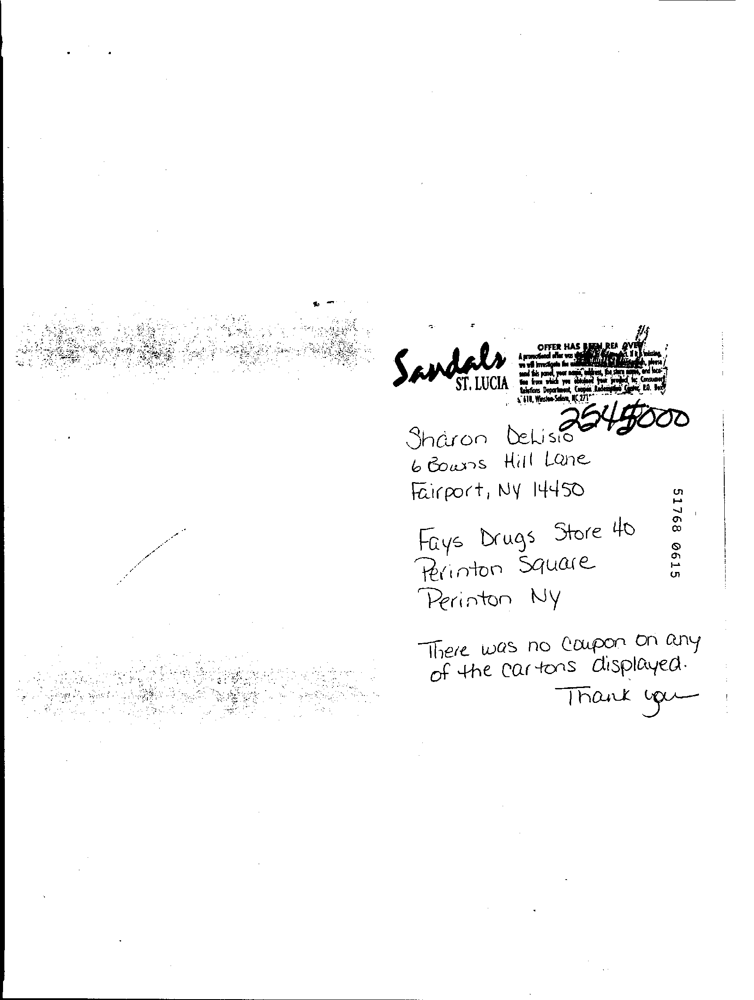 Sandals
ST. LUCIA
OFFER HAS BEEN
A promotional offer was missing,
we will investigate the please
send this panel, your name, address, the store name, and loca-
tion from which you obtained your product, to: Consumer
Relations Department, Coupon Redemption Center, P.O. Box
618, Winston-Salem, NC 271
Sharon DeLisio
6 Bowns Hill Lane
Fairport, NY 14450
Fays Drugs Store 40
Perinton Square
Perinton NY
There was no Coupon on any
of the cartons displayed.
Thank you
51768 0615